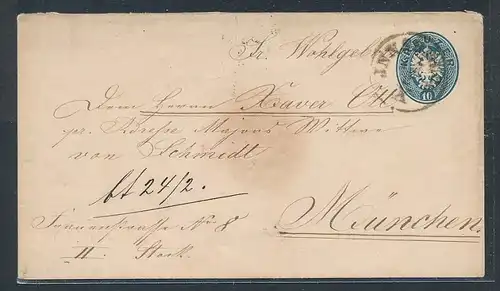 Sr. Wohlgeb
Dem Herrn Xaver Ott
pr. Adresse Majors Wittwe
von Schmidt
24/2.
München.
Frauenstrasse No 8
II. Stock.
INNS
10